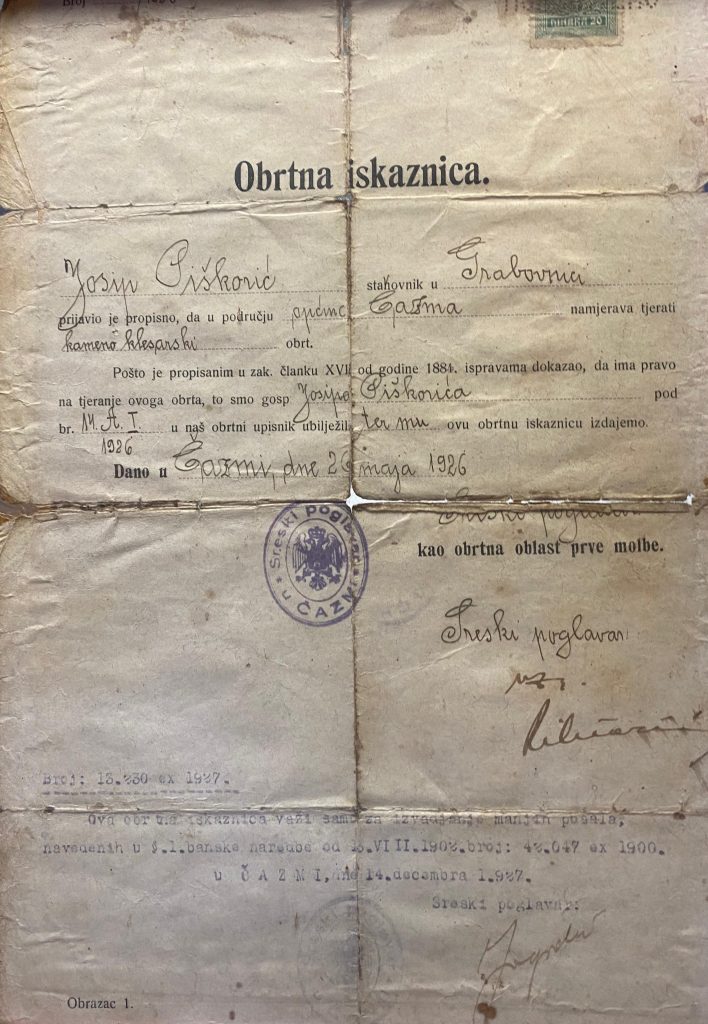 Broj
DINARA 20
Obrtna iskaznica.
Josip Piškorić stanovnik u Grabovnici
prijavio je propisno, da u području općine Čazma namjerava tjerati
kameno klesarski obrt.
Pošto je propisanim u zak. članku XVII od godine 1884. ispravama dokazao, da ima pravo
na tjeranje ovoga obrta, to smo gosp Josipa Piškorića pod
br. 14. A. I. u naš obrtni upisnik ubilježili, te mu ovu obrtnu iskaznicu izdajemo.
1926
Dano u Čazmi, dne 26 maja 1926
Sreski poglavar
kao obrtna oblast prve molbe.
Sreski poglavar u ČAZMI
Sreski poglavar
Broj: 13.230 ex 1927.
Ova obrtna iskaznica važi samo za izvadjanje manjih posala,
navedenih u §.1.banske naredbe od VIII.1902.broj: 42.047 ex 1900.
U ČAZMI, dne 14.decembra 1.927.
Sreski poglavar:
Obrazac 1.